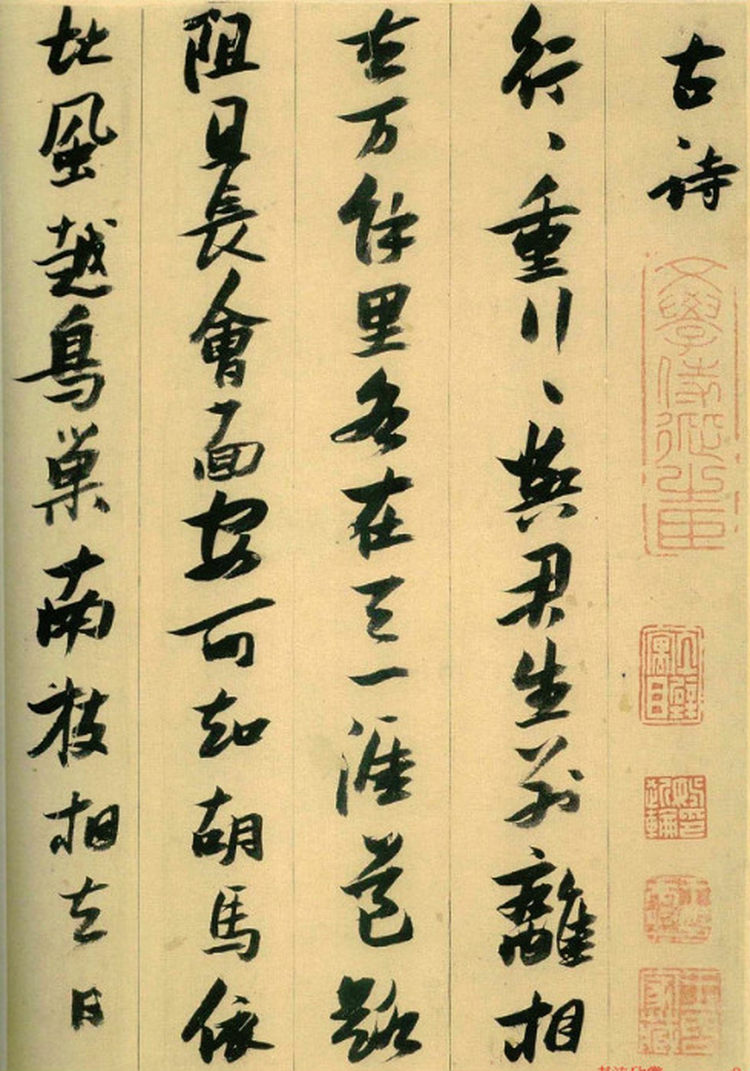 古詩
文學侍從之臣
行、重行、與君生別離相
去万餘里各在天一涯道路
阻且長會面安可知胡馬依
北風越鳥巢南枝相去日